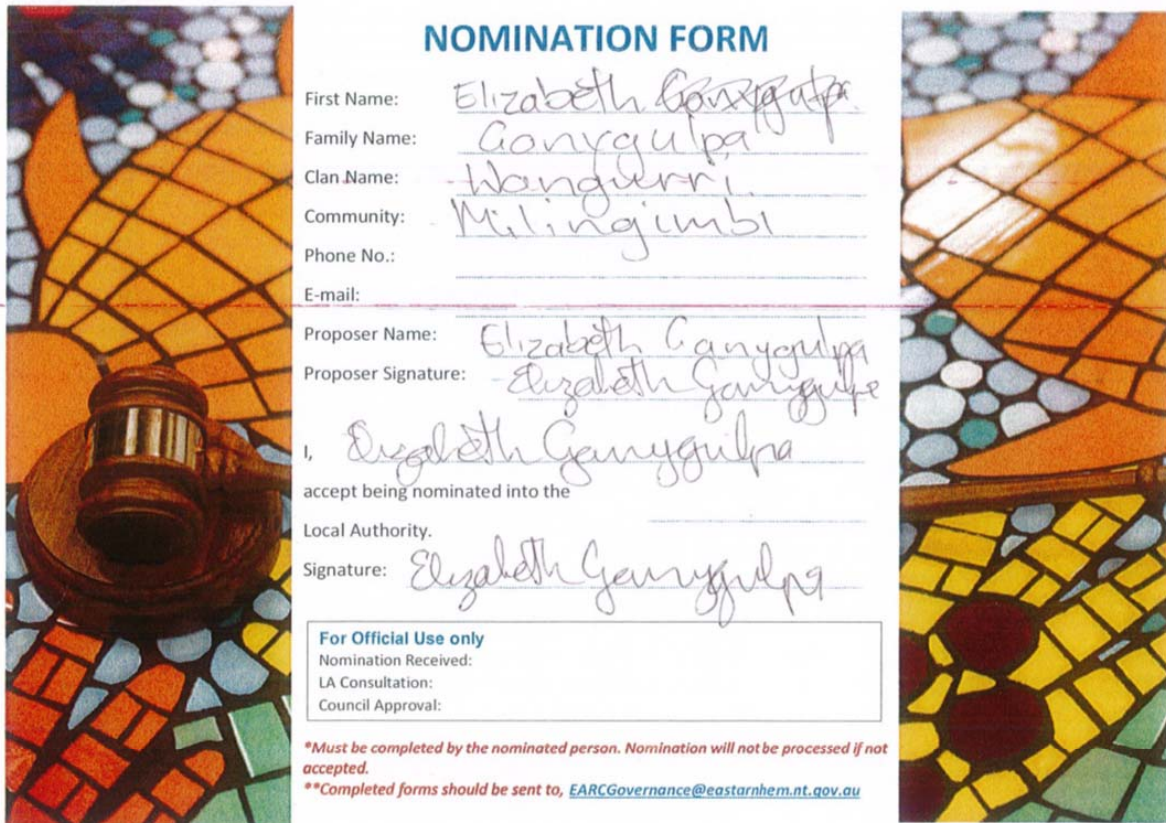 NOMINATION FORM
First Name: Elizabeth Ganygulpa
Family Name: Ganygulpa
Clan Name: Wangurri
Community: Milingimbi
Phone No.:
E-mail:
Proposer Name: Elizabeth Ganygulpa
Proposer Signature: Elizabeth Ganygulpa
I, Elizabeth Ganygulpa
accept being nominated into the
Local Authority.
Signature: Elizabeth Ganygulpa
For Official Use only
Nomination Received:
LA Consultation:
Council Approval:
*Must be completed by the nominated person. Nomination will not be processed if not
accepted.
**Completed forms should be sent to, EARCGovernance@eastarnhem.nt.gov.au